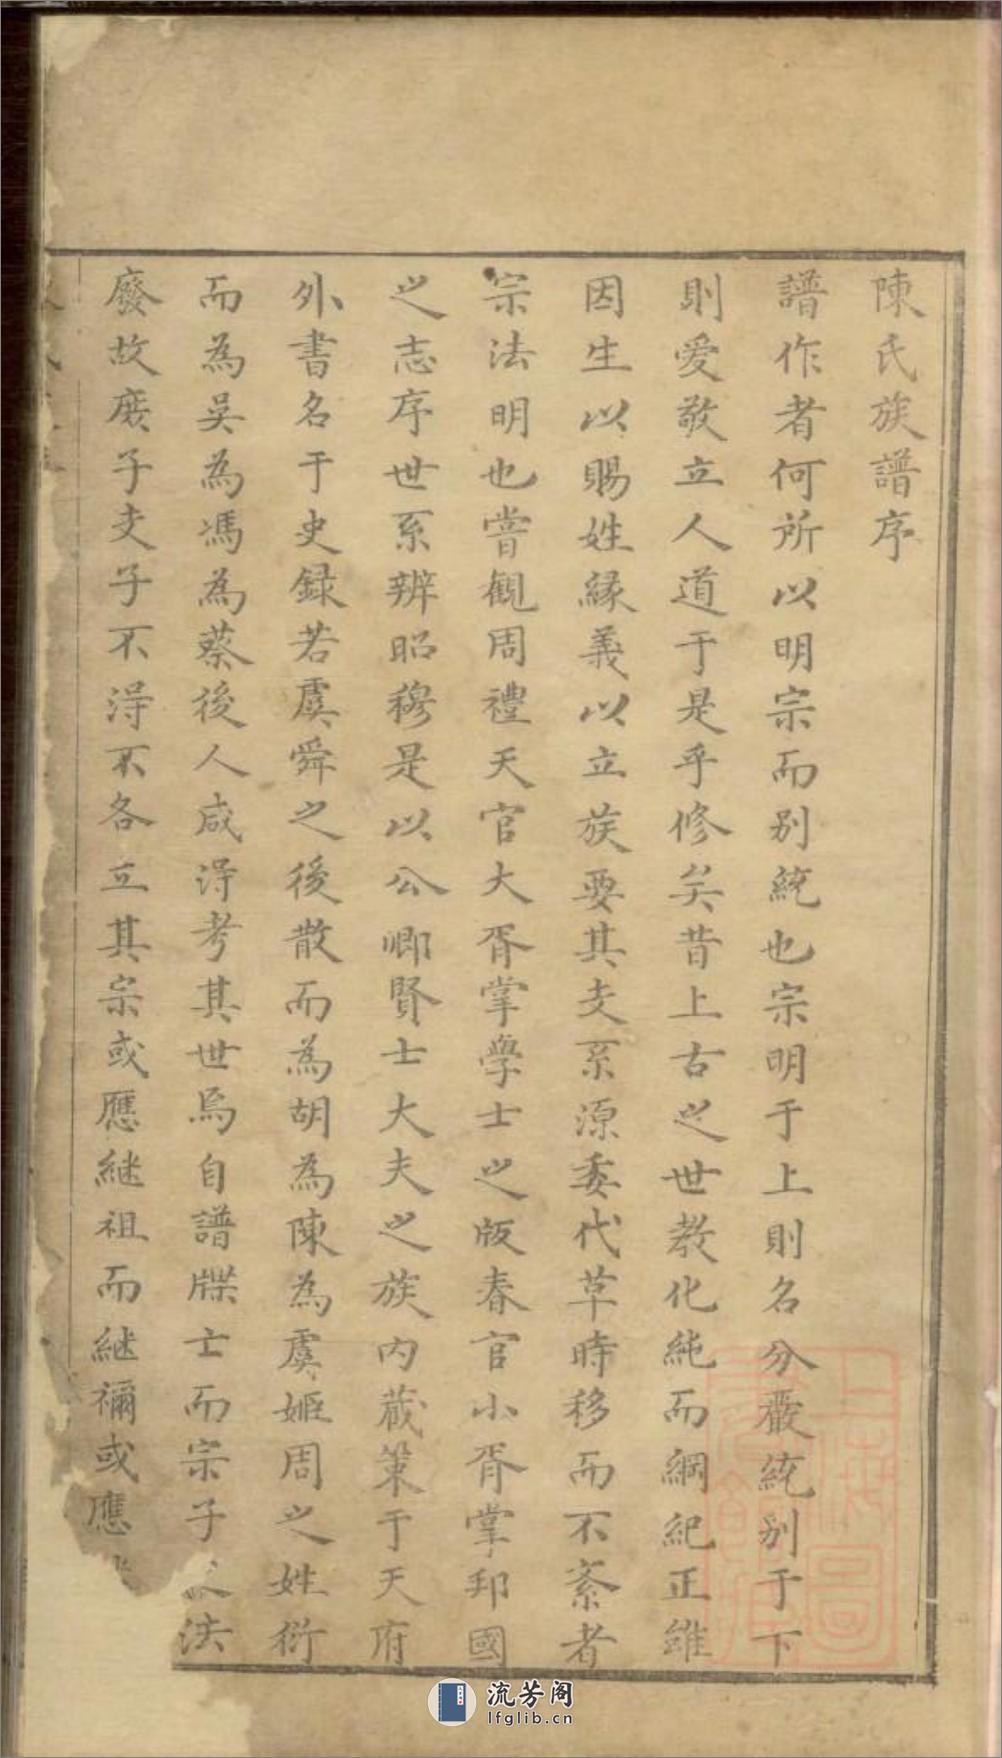 陳氏族譜序
譜作者何所以明宗而别統也宗明于上則名分嚴統别于下
則爱敬立人道于是乎修矣昔上古之世教化純而綱紀正雖
因生以賜姓緣義以立族要其支系源委代革時移而不紊者
宗法明也嘗觀周禮天官大胥掌學士之版春官小胥掌邦國
之志序世系辨昭穆是以公卿賢士大夫之族内蔵策于天府
外書名于史録若虞舜之後散而為胡為陳為虞姬周之姓衍
而為吴為馮為蔡後人咸淂考其世烏自譜牒士而宗子之法
廢故庻子支子不淂不各立其宗或應継祖而継禰或應
流芳阁
lfglib.cn